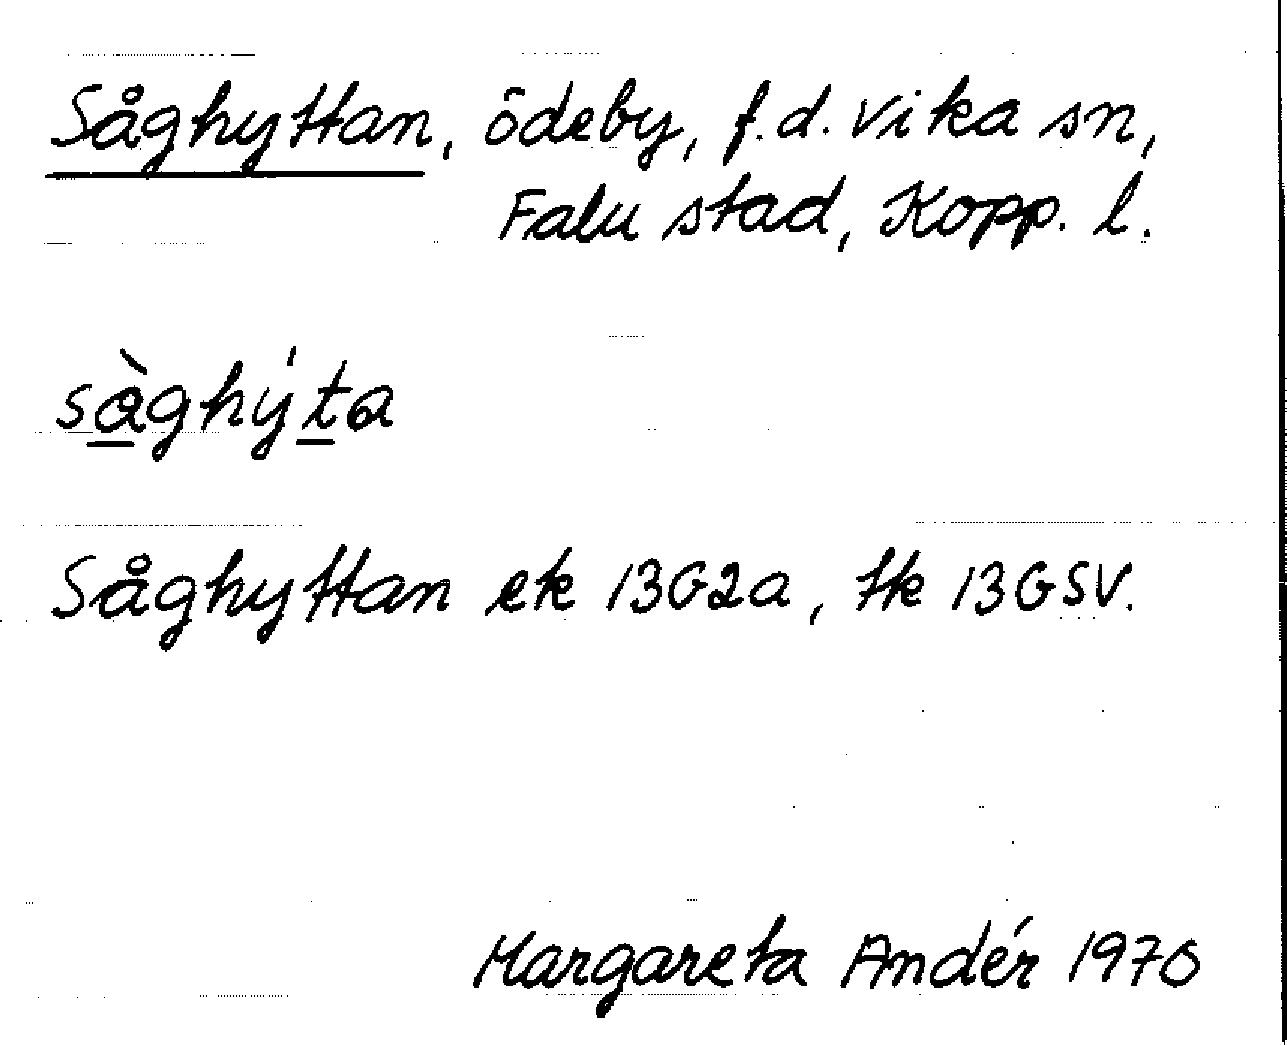 Såghyttan, ödeby, f.d. Vika sn,
Falu stad, Kopp. l.
sàghýta
Såghyttan ek 13G2a, tk 13GSV.
Margareta Andér 1970